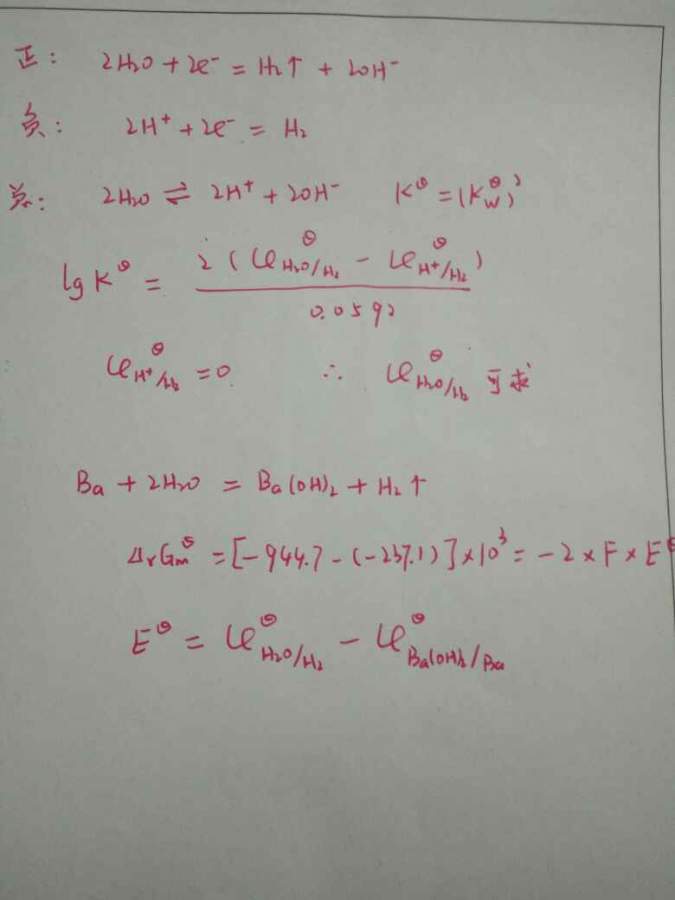 正: 2H₂O + 2e⁻ = H₂↑ + 2OH⁻
负: 2H⁺ + 2e⁻ = H₂
总: 2H₂O ⇌ 2H⁺ + 2OH⁻ K^θ = (K_W^θ)²
lg K^θ = 2 (φ^θ_{H₂O/H₂} - φ^θ_{H⁺/H₂}) / 0.0592
φ^θ_{H⁺/H₂} = 0 ∴ φ^θ_{H₂O/H₂} 可求
Ba + 2H₂O = Ba(OH)₂ + H₂↑
Δ_rG_m^θ = [-944.7 - (-237.1)] × 10³ = -2 × F × E^θ
E^θ = φ^θ_{H₂O/H₂} - φ^θ_{Ba(OH)₂/Ba}